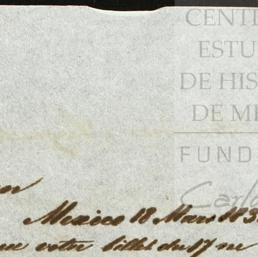 CENT
ESTU
DE HIS
DE ME
FUND
Carlo
Mexico 18 Mars 183
que votre billet du 17 ne